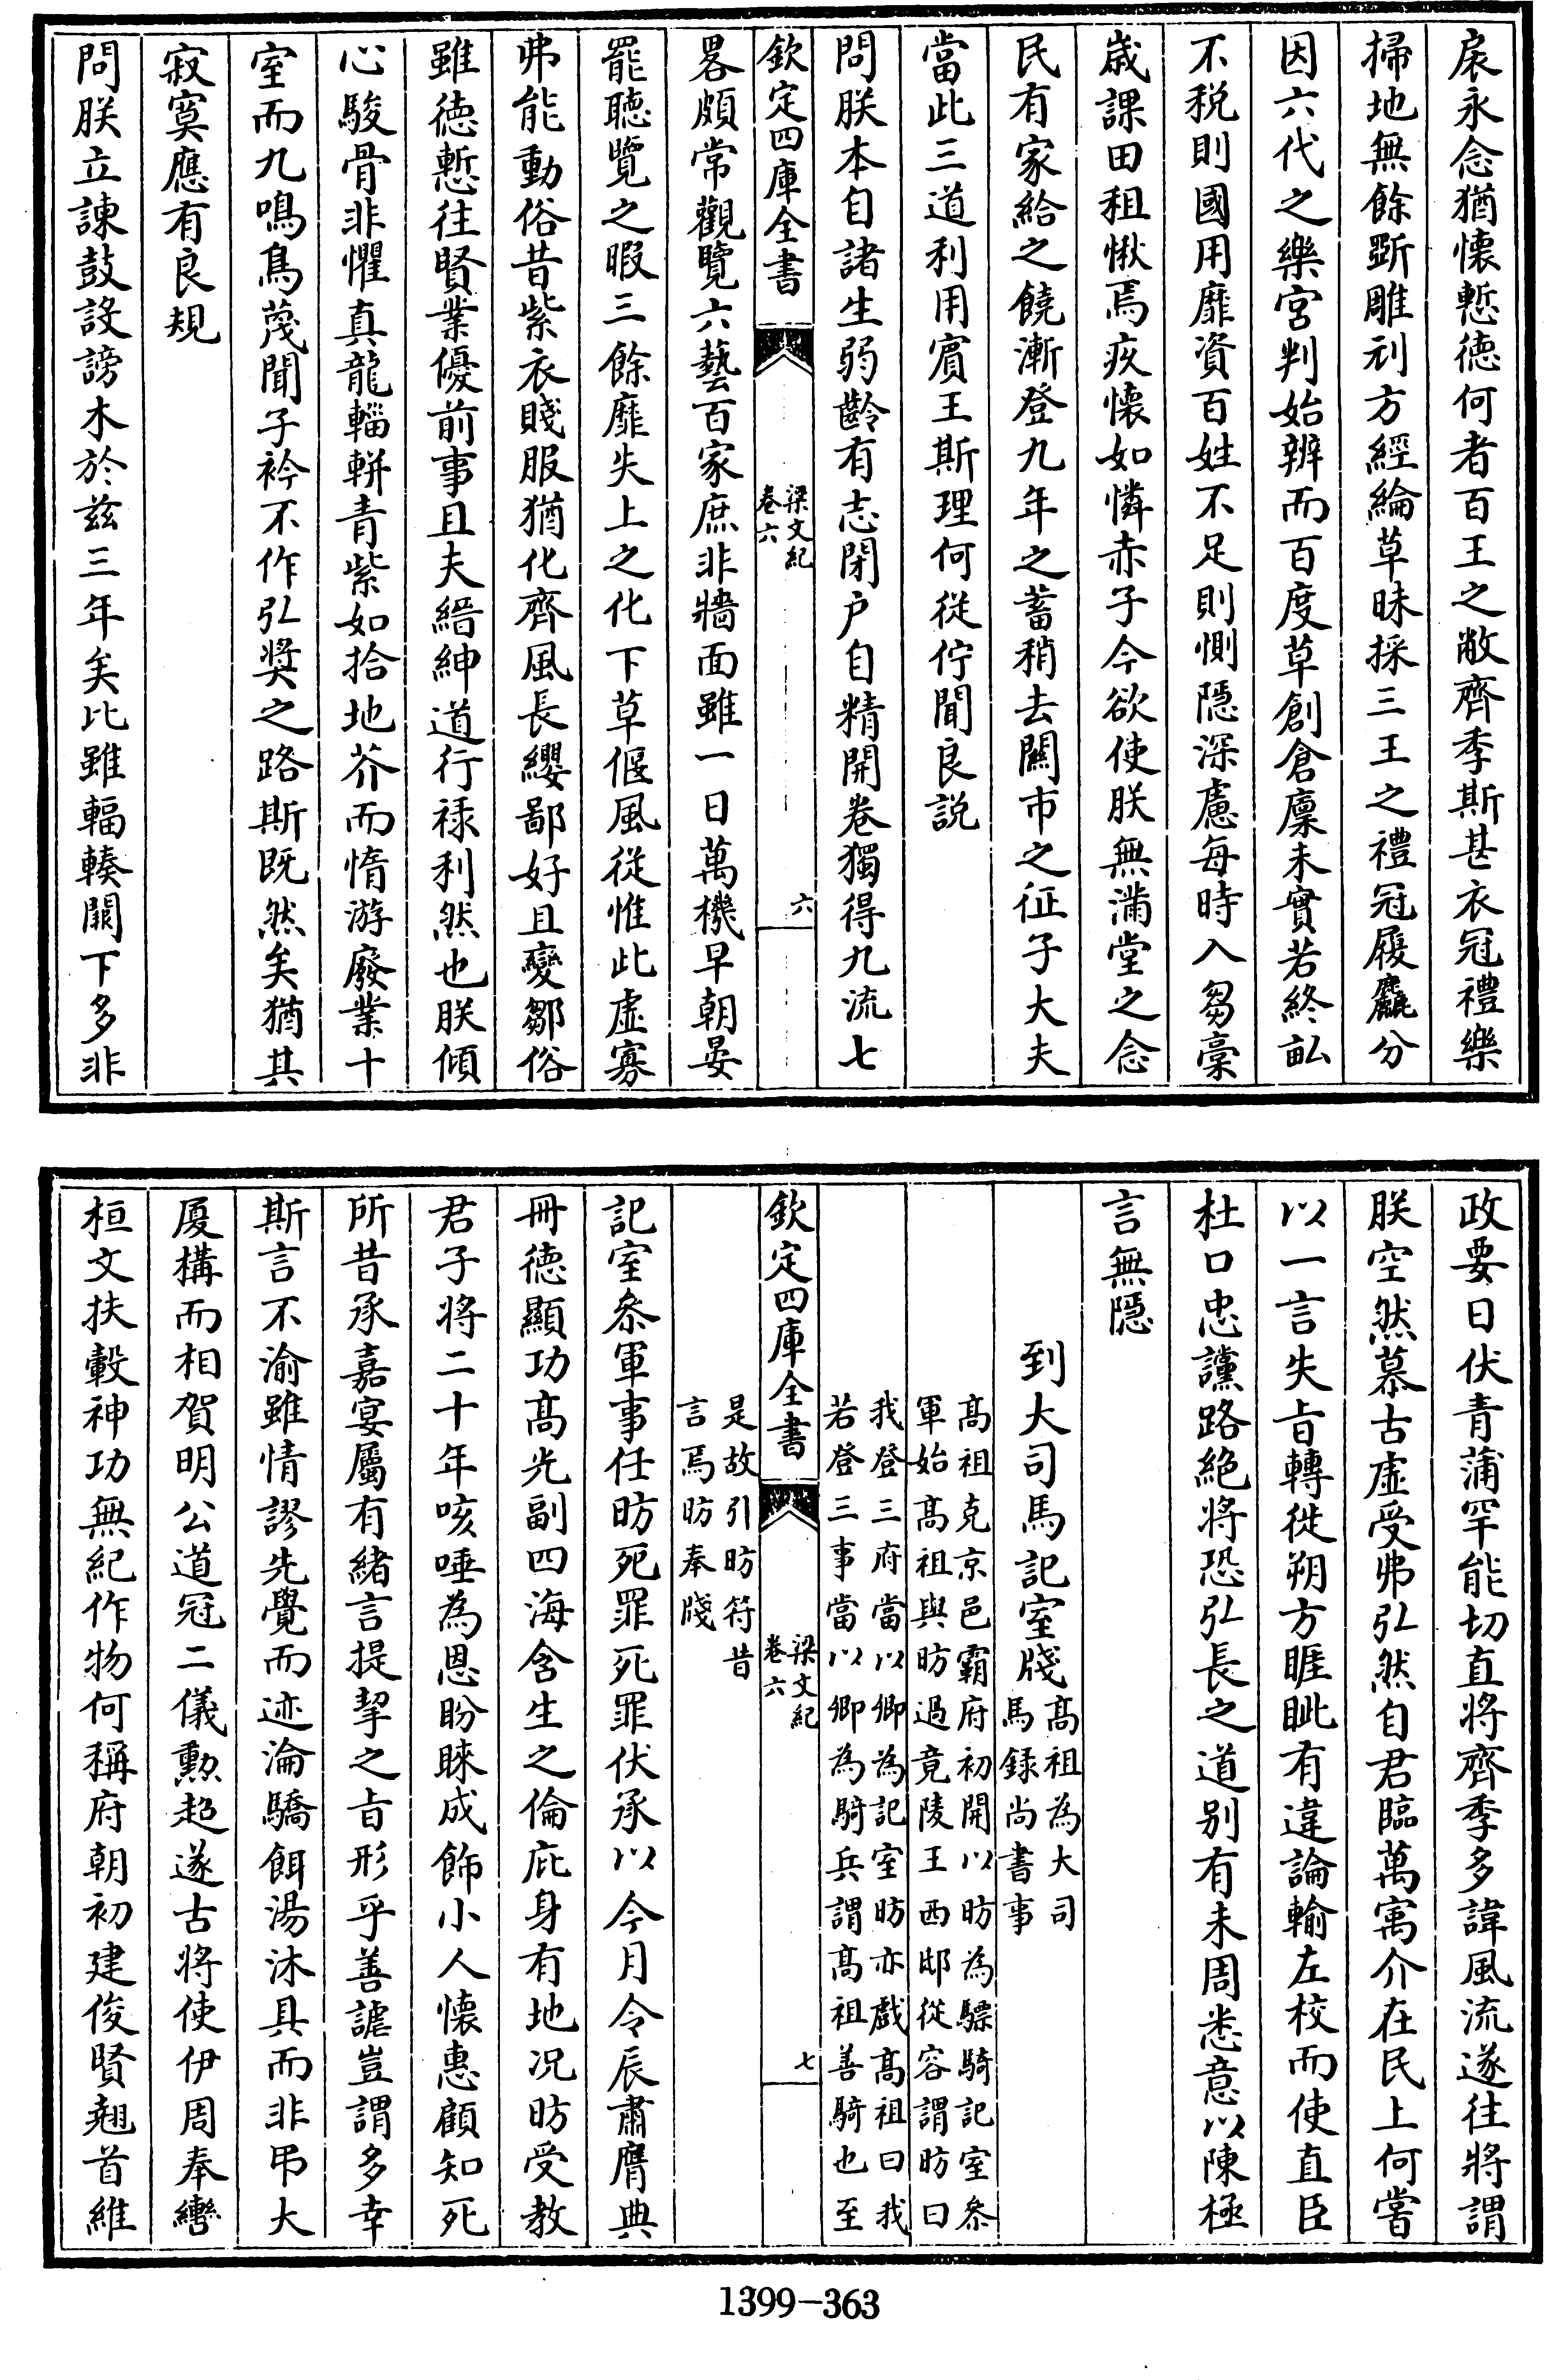 扆永念猶懷慙徳何者百王之敝齊季斯甚衣冠禮樂
掃地無餘斲雕刓方經綸草昧採三王之禮冠履麤分
因六代之樂宮判始辨而百度草創倉廩未實若終畝
不税則國用靡資百姓不足則惻隠深慮每時入芻槀
歳課田租愀焉疚懷如憐赤子今欲使朕無滿堂之念
民有家給之饒漸登九年之蓄稍去關市之征子大夫
當此三道利用賓王斯理何從佇聞良説
問朕本自諸生弱齡有志閉户自精開卷獨得九流七
欽定四庫全書
梁文紀
卷六
六
畧頗常觀覽六藝百家庶非牆面雖一日萬機早朝晏
罷聽覽之暇三餘靡失上之化下草偃風從惟此虚寡
弗能動俗昔紫衣賤服猶化齊風長纓鄙好且變鄒俗
雖徳慙往賢業優前事且夫縉紳道行祿利然也朕傾
心駿骨非懼真龍輜軿青紫如拾地芥而惰游廢業十
室而九鳴鳥蔑聞子衿不作弘奬之路斯既然矣猶其
寂寞應有良規
問朕立諫鼓設謗木於兹三年矣比雖輻輳闕下多非
政要日伏青蒲罕能切直將齊季多諱風流遂往將謂
朕空然慕古虚受弗弘然自君臨萬㝢介在民上何嘗
以一言失㫖轉徙朔方睚眦有違論輸左校而使直臣
杜口忠讜路絶將恐弘長之道别有未周悉意以陳極
言無隠
到大司馬記室牋
髙祖為大司
馬録尚書事
髙祖克京邑霸府初開以昉為驃騎記室參
軍始髙祖與昉過竟陵王西邸從容謂昉曰
我登三府當以卿為記室昉亦戲髙祖曰我
若登三事當以卿為騎兵謂髙祖善騎也至
欽定四庫全書
梁文紀
卷六
七
是故引昉符昔
言焉昉奉牋
記室參軍事任昉死罪死罪伏承以今月令辰肅膺典
冊德顯功髙光副四海含生之倫庇身有地况昉受教
君子將二十年咳唾為恩盼睞成飾小人懷惠顧知死
所昔承嘉宴屬有緒言提挈之㫖形乎善謔豈謂多幸
斯言不渝雖情謬先覺而迹淪驕餌湯沐具而非弔大
厦構而相賀明公道冠二儀勲超遂古將使伊周奉轡
桓文扶轂神功無紀作物何稱府朝初建俊賢翹首維
1399-363